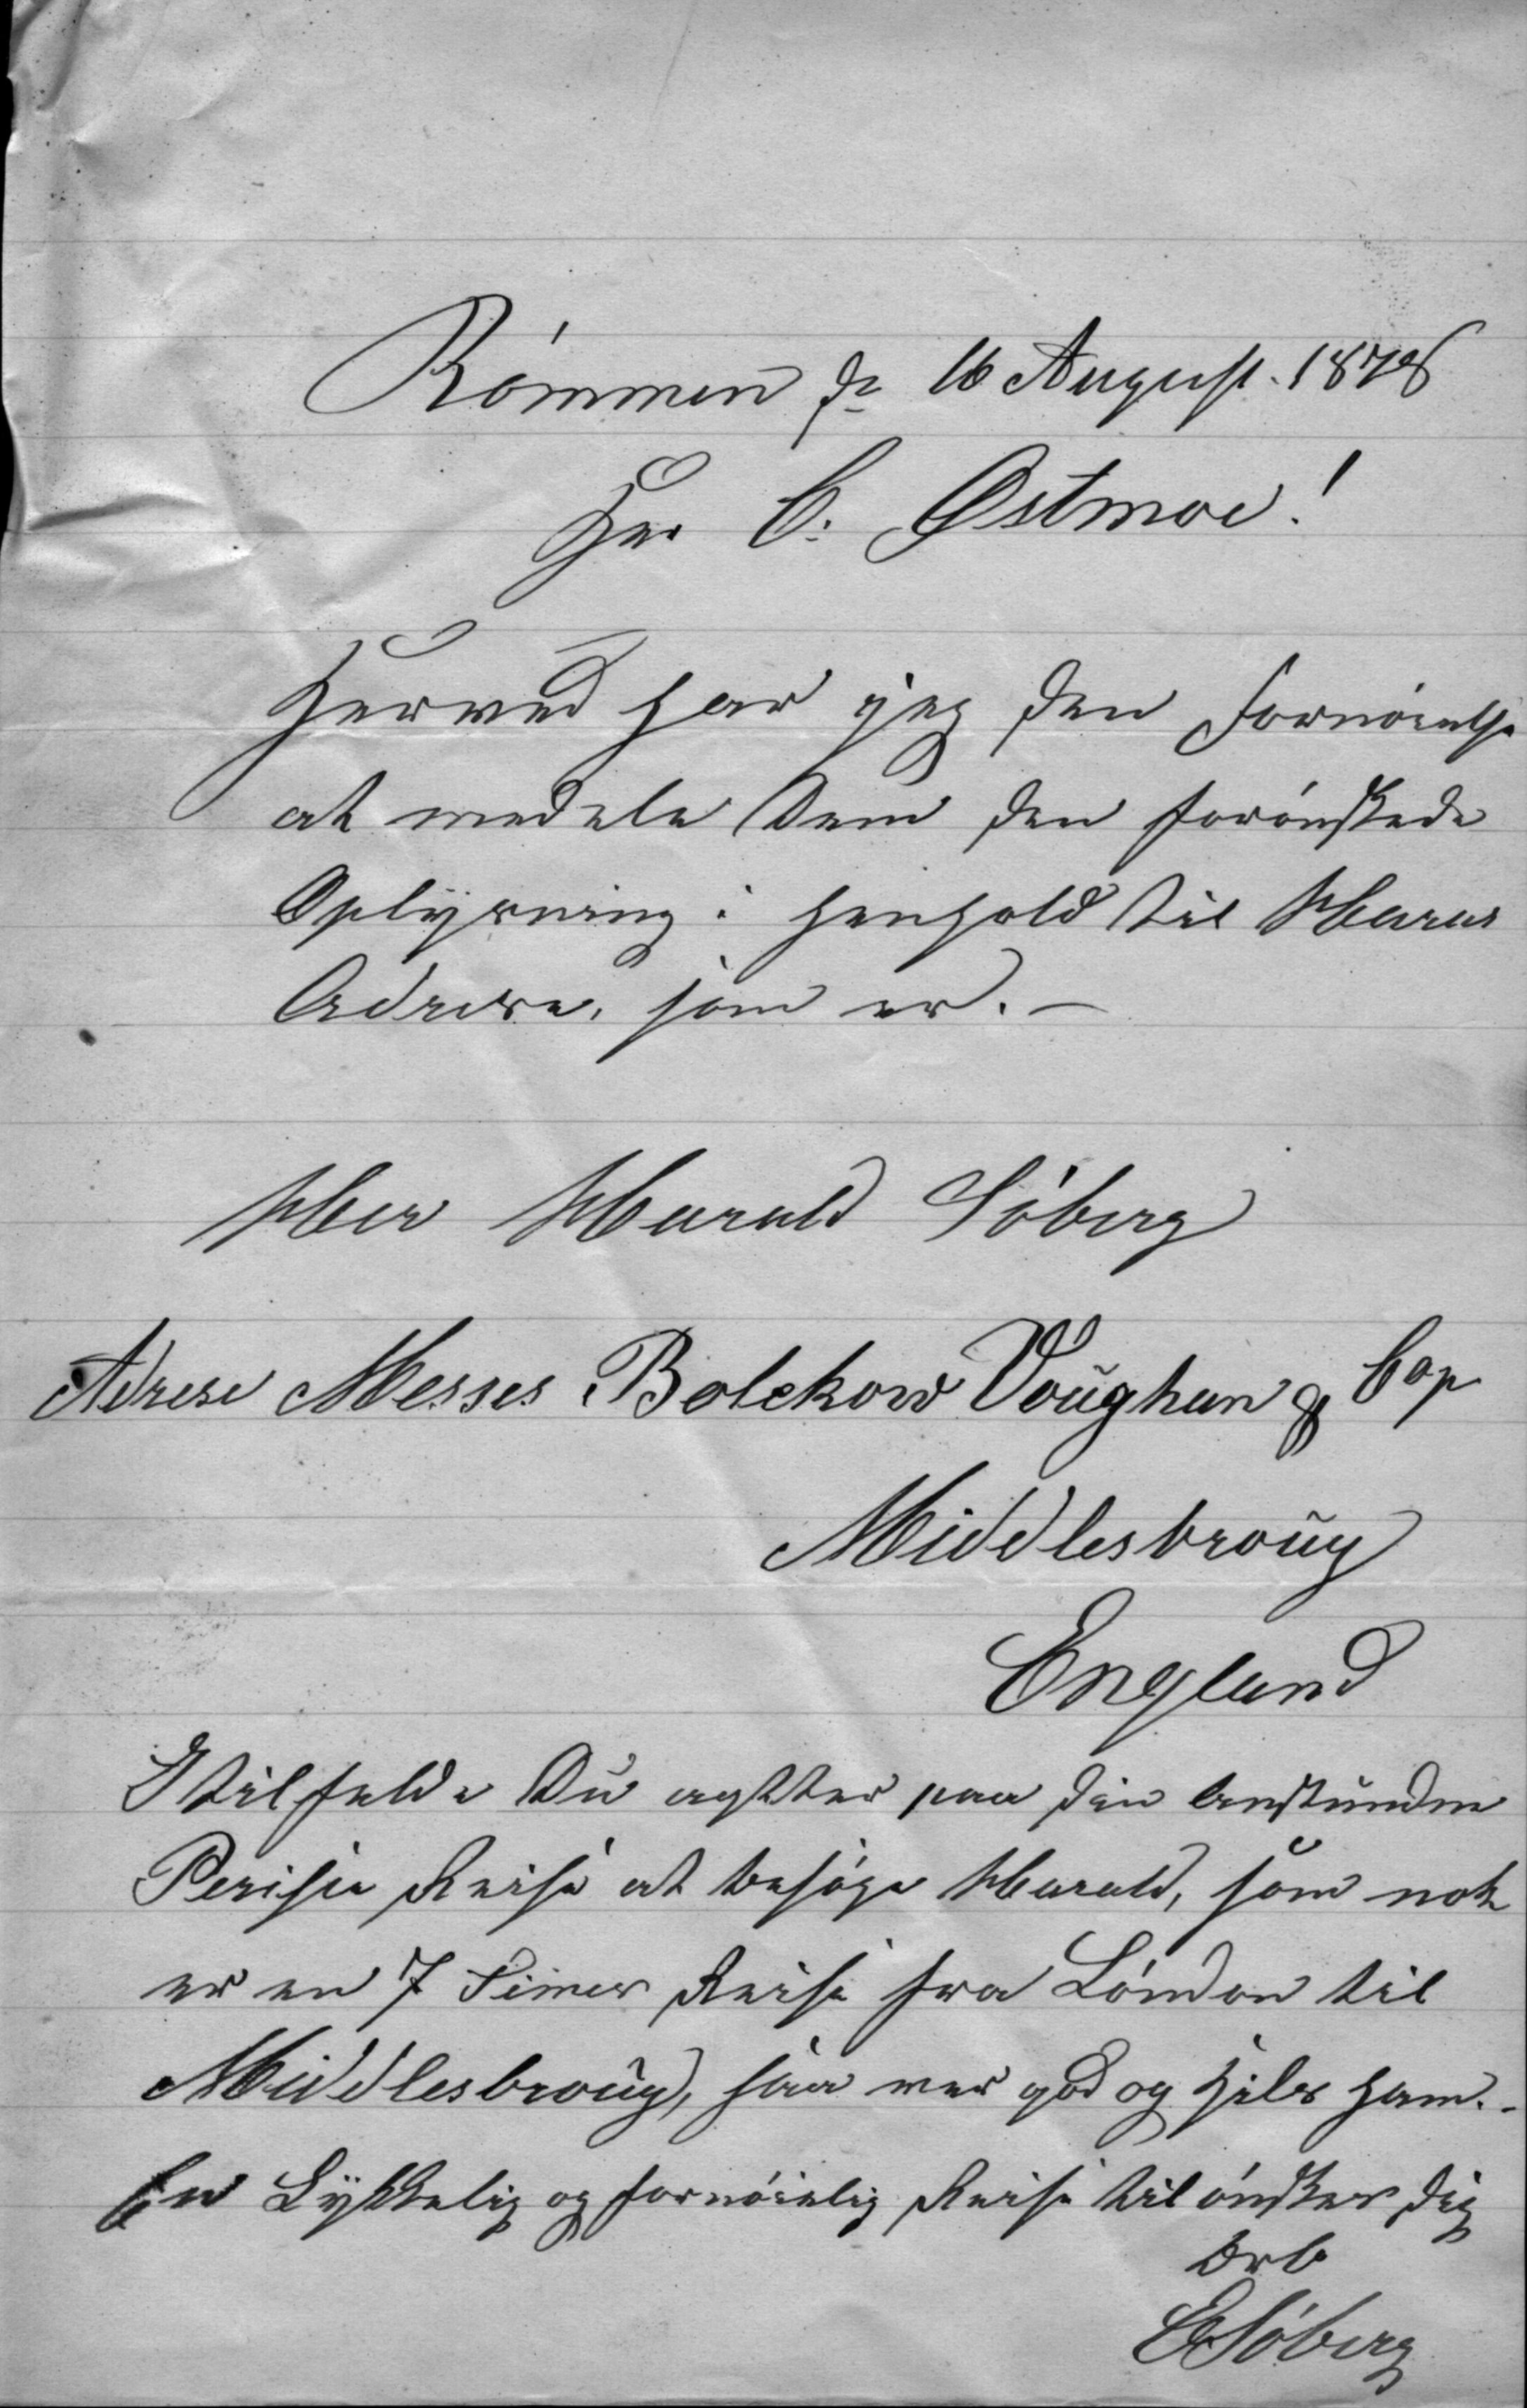 Römmen d. 16 August. 1878
Herr C. Østmoe!
Herved har jeg den Fornöielse
at medele Dem den forönskede
Oplysning i henhold til Harals
Adresse, som er. —
Her Harald Söberg
Adrese Messes Bolckow Voughan & Cop
Middlesbroug
England
I tilfelde Du agtter paa din anstundene
Pariser Reise at besöge Harald, som nok
er en 7 Timer Reise fra London til
Middlesbroug, saa ver god og hils ham. -
En Lykkelig og fornöielig Reise til önsker dig
Erb
E Söberg